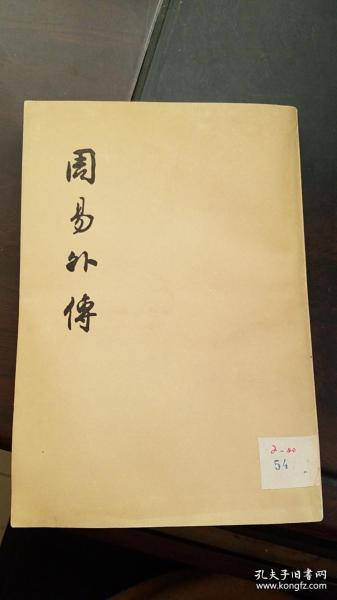 周易外傳
2-00
54
孔夫子旧书网
www.kongfz.com